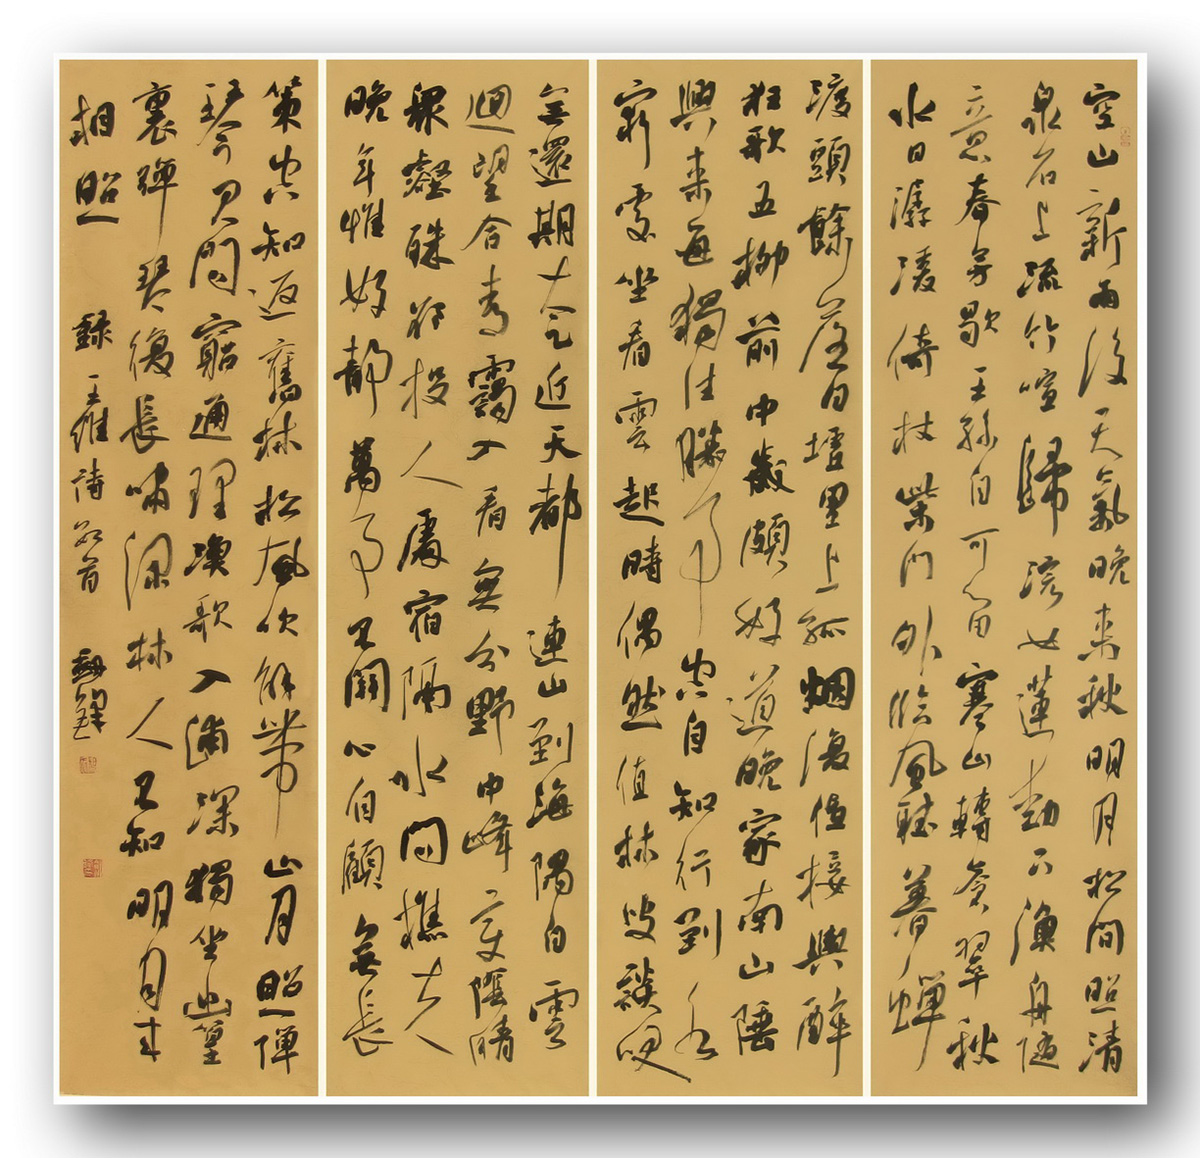 空山新雨後天氣晚来秋明月松间照清
泉石上流竹喧歸浣女蓮動下漁舟随
意春芳歇王孫自可留寒山轉蒼翠秋
水日潺湲倚杖柴门外临風聴暮蝉
渡頭餘落日墟里上孤烟復值接輿醉
狂歌五柳前中歲頗好道晚家南山陲
興来每獨往勝事空自知行到水
窮處坐看雲起時偶然值林叟談笑
無還期太乙近天都連山到海隅白雲
迴望合青靄入看無分野中峰變陰晴
眾壑殊欲投人處宿隔水問樵夫
晚年惟好静萬事不關心自顧無長
策空知返舊林松風吹解带山月照弹
琴君問窮通理漁歌入浦深獨坐幽篁
裏弹琴復長啸深林人不知明月来
相照 録王維詩数首